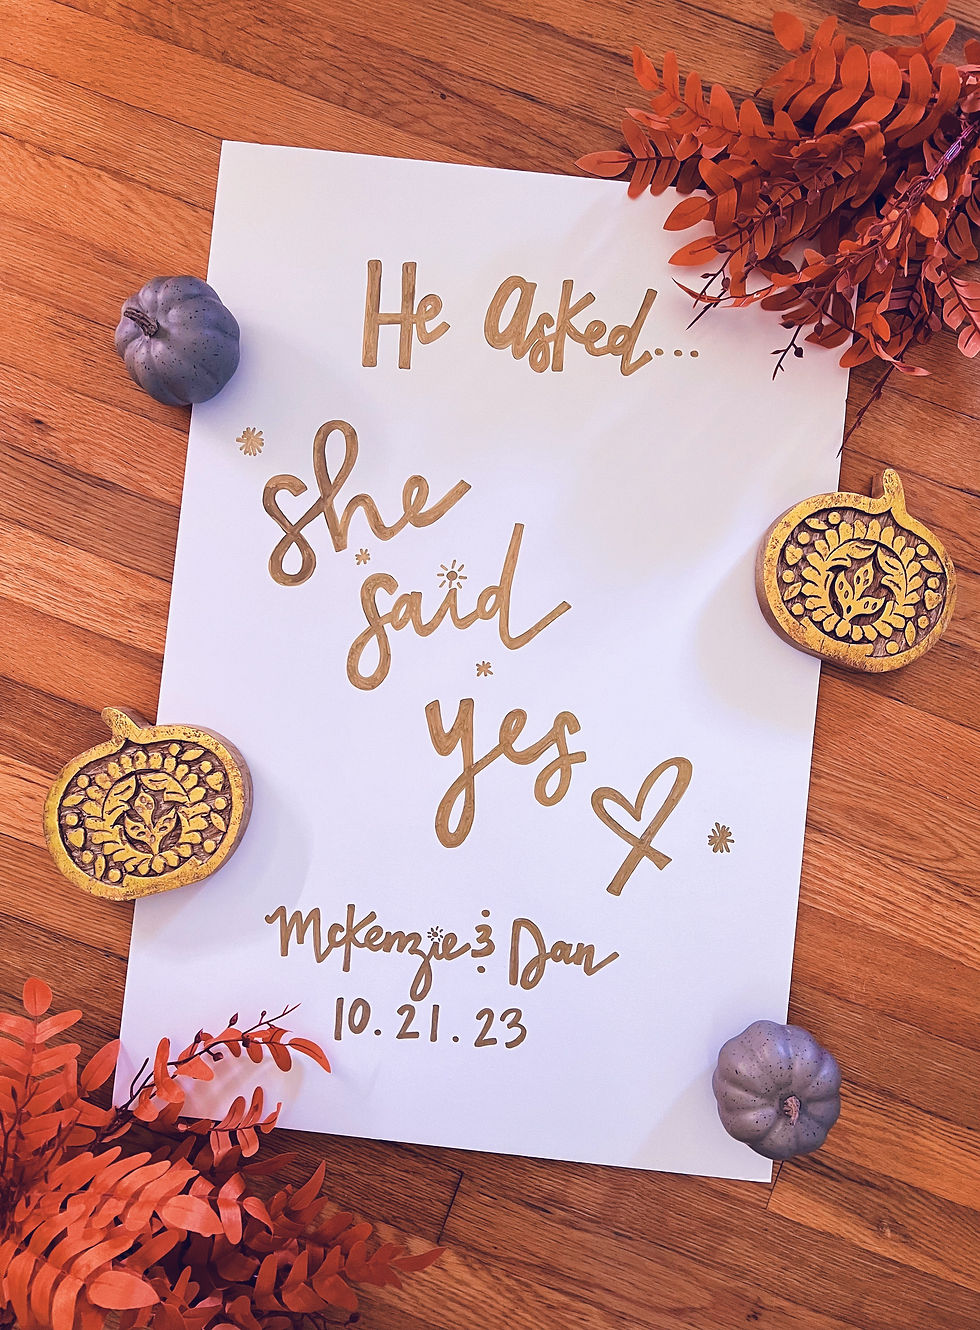 He Asked...
she
said
yes
McKenzie & Dan
10.21.23